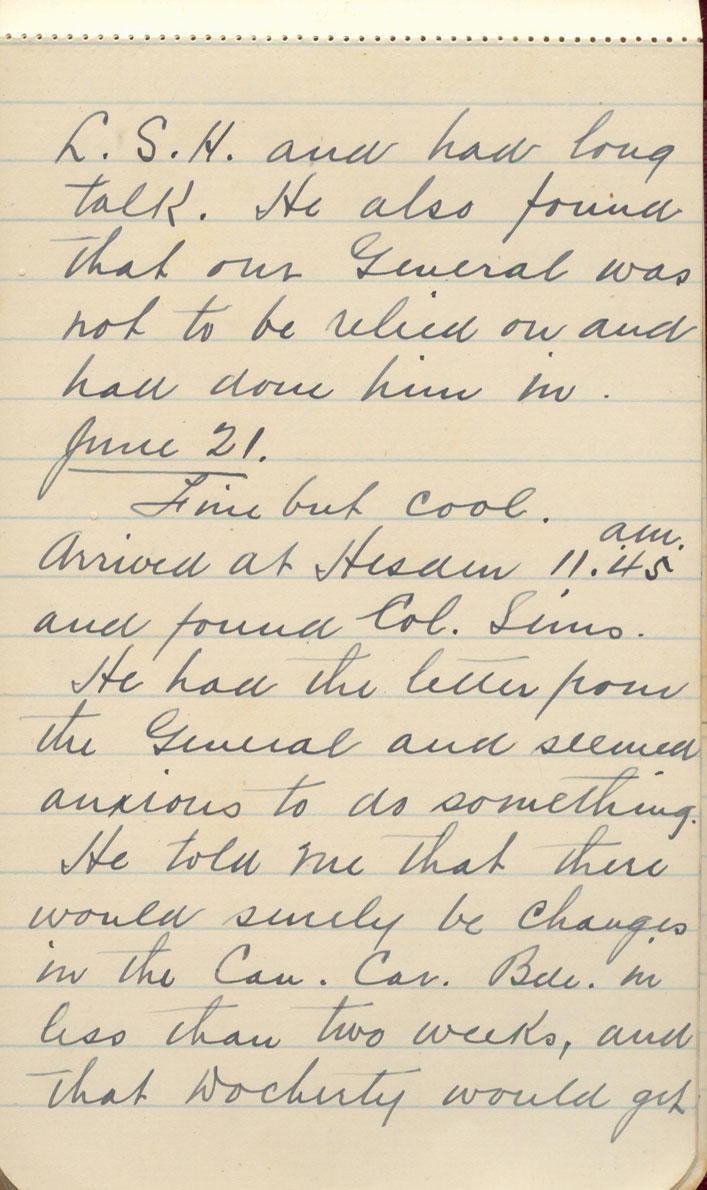 L. S. H. and had long
talk. He also found
that our General was
not to be relied on and
had done him in.
June 21.
Fine but cool.
am.
Arrived at Hesdin 11.45
and found Col. Sims.
He had the letter from
the General and seemed
anxious to do something.
He told me that there
would surely be changes
in the Can. Cav. Bde. in
less than two weeks, and
that Docherty would get